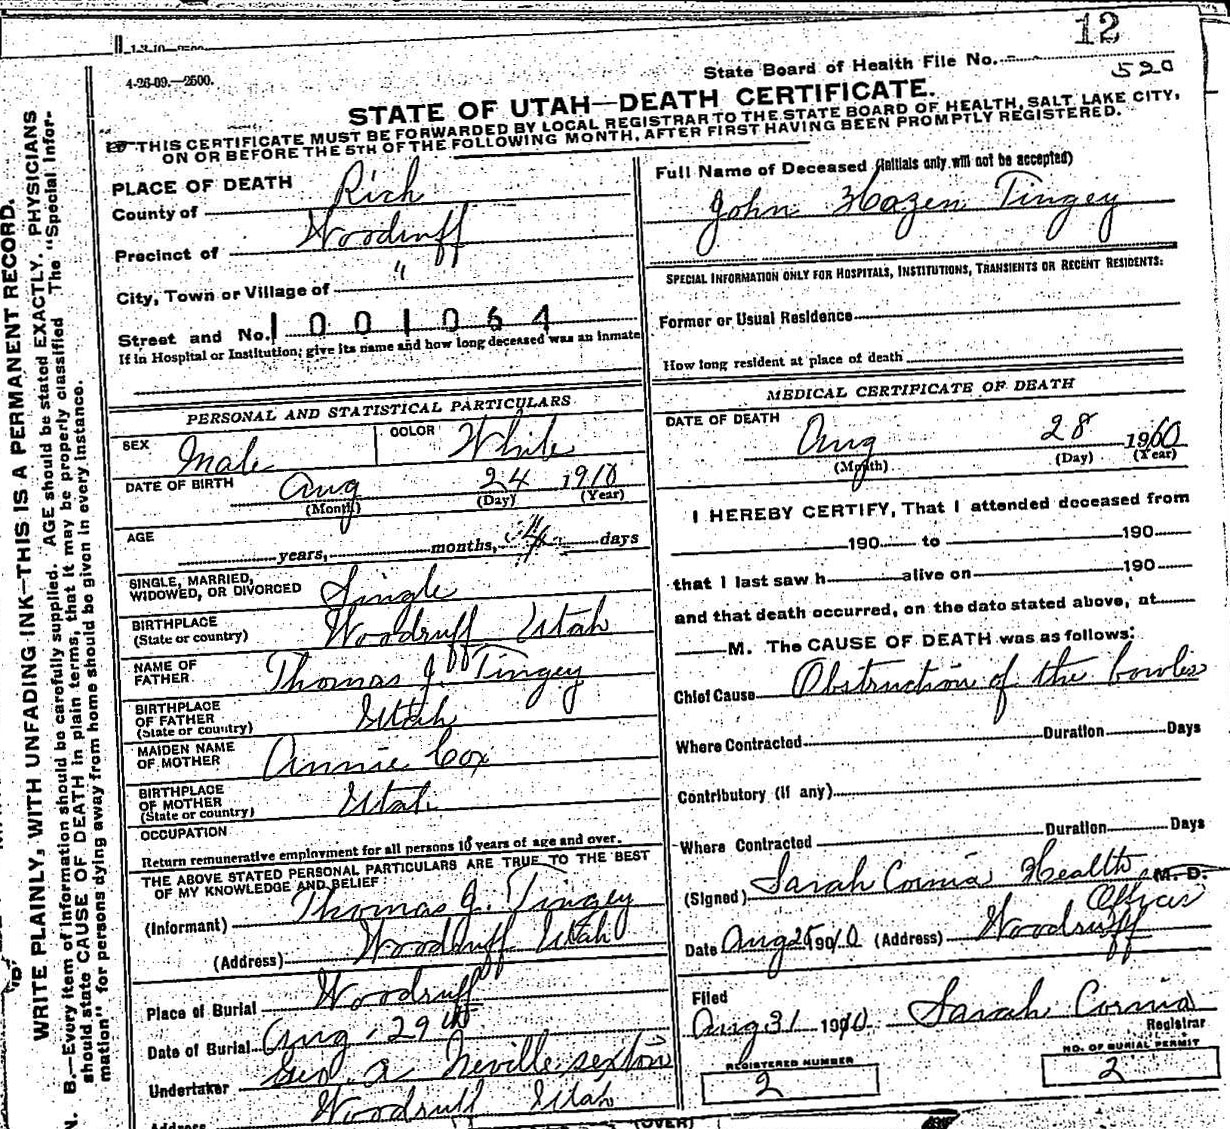 12
1-3-10-2500
4-26-09.—2500.
State Board of Health File No.
520
STATE OF UTAH—DEATH CERTIFICATE.
THIS CERTIFICATE MUST BE FORWARDED BY LOCAL REGISTRAR TO THE STATE BOARD OF HEALTH, SALT LAKE CITY,
ON OR BEFORE THE 5TH OF THE FOLLOWING MONTH, AFTER FIRST HAVING BEEN PROMPTLY REGISTERED.
WRITE PLAINLY, WITH UNFADING INK—THIS IS A PERMANENT RECORD.
N. B.—Every item of information should be carefully supplied. AGE should be stated EXACTLY. PHYSICIANS
should state CAUSE OF DEATH in plain terms, that it may be properly classified The "Special Infor-
mation" for persons dying away from home should be given in every instance.
PLACE OF DEATH
County of Rich
Precinct of Woodruff
City, Town or Village of "
Street and No. 1001064
If in Hospital or Institution; give its name and how long deceased was an inmate
PERSONAL AND STATISTICAL PARTICULARS
SEX Male COLOR White
DATE OF BIRTH Aug 24 1910
(Month) (Day) (Year)
AGE
years, months, 4 days
SINGLE, MARRIED,
WIDOWED, OR DIVORCED Single
BIRTHPLACE
(State or country) Woodruff Utah
NAME OF
FATHER Thomas J. Tingey
BIRTHPLACE
OF FATHER
(State or country) Utah
MAIDEN NAME
OF MOTHER Annie Cox
BIRTHPLACE
OF MOTHER
(State or country) Utah
OCCUPATION
Return remunerative employment for all persons 10 years of age and over.
THE ABOVE STATED PERSONAL PARTICULARS ARE TRUE TO THE BEST
OF MY KNOWLEDGE AND BELIEF
(Informant) Thomas J. Tingey
(Address) Woodruff Utah
Place of Burial Woodruff
Date of Burial Aug. 29th
Undertaker Geo. A Neville sexton
Address Woodruff Utah
Full Name of Deceased (Initials only will not be accepted)
John Hazen Tingey
SPECIAL INFORMATION ONLY FOR HOSPITALS, INSTITUTIONS, TRANSIENTS OR RECENT RESIDENTS:
Former or Usual Residence
How long resident at place of death
MEDICAL CERTIFICATE OF DEATH
DATE OF DEATH
Aug 28 1910
(Month) (Day) (Year)
I HEREBY CERTIFY, That I attended deceased from
190 to 190
that I last saw h alive on 190
and that death occurred, on the date stated above, at
M. The CAUSE OF DEATH was as follows:
Chief Cause Obstruction of the bowles
Where Contracted Duration Days
Contributory (if any)
Where Contracted Duration Days
(Signed) Sarah Cornia Health M. D.
Officer
Date Aug 1910 (Address) Woodruff
Filed
Aug 31 1910 Sarah Cornia
Registrar
REGISTERED NUMBER
2
NO. OF BURIAL PERMIT
2
(OVER)